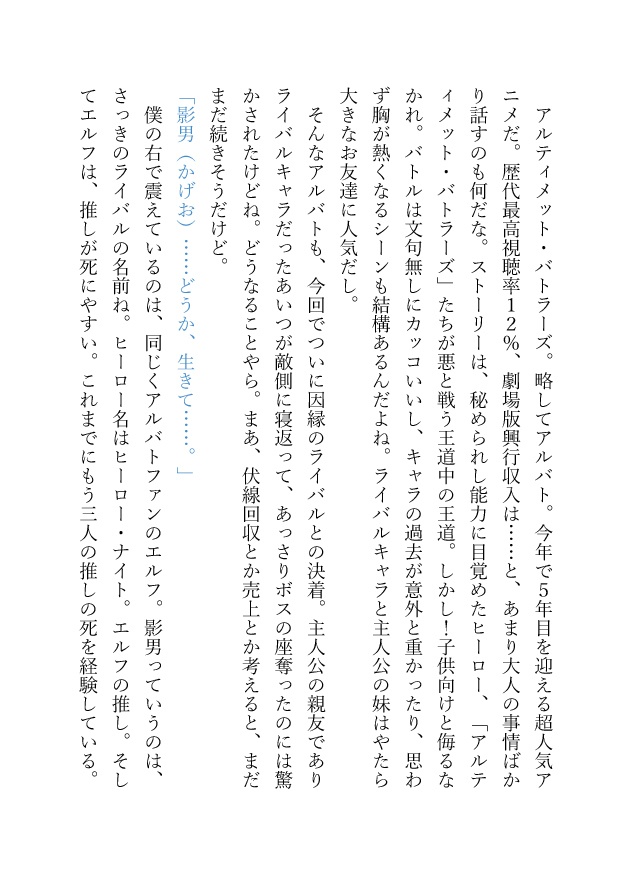 アルティメット・バトラーズ。略してアルバト。今年で５年目を迎える超人気ア
ニメだ。歴代最高視聴率１２％、劇場版興行収入は……と、あまり大人の事情ばか
り話すのも何だな。ストーリーは、秘められし能力に目覚めたヒーロー、「アルテ
ィメット・バトラーズ」たちが悪と戦う王道中の王道。しかし！子供向けと侮るな
かれ。バトルは文句無しにカッコいいし、キャラの過去が意外と重かったり、思わ
ず胸が熱くなるシーンも結構あるんだよね。ライバルキャラと主人公の妹はやたら
大きなお友達に人気だし。
そんなアルバトも、今回でついに因縁のライバルとの決着。主人公の親友であり
ライバルキャラだったあいつが敵側に寝返って、あっさりボスの座奪ったのには驚
かされたけどね。どうなることやら。まあ、伏線回収とか売上とか考えると、まだ
まだ続きそうだけど。
「影男（かげお）……どうか、生きて……。」
僕の右で震えているのは、同じくアルバトファンのエルフ。影男っていうのは、
さっきのライバルの名前ね。ヒーロー名はヒーロー・ナイト。エルフの推し。そし
てエルフは、推しが死にやすい。これまでにもう三人の推しの死を経験している。